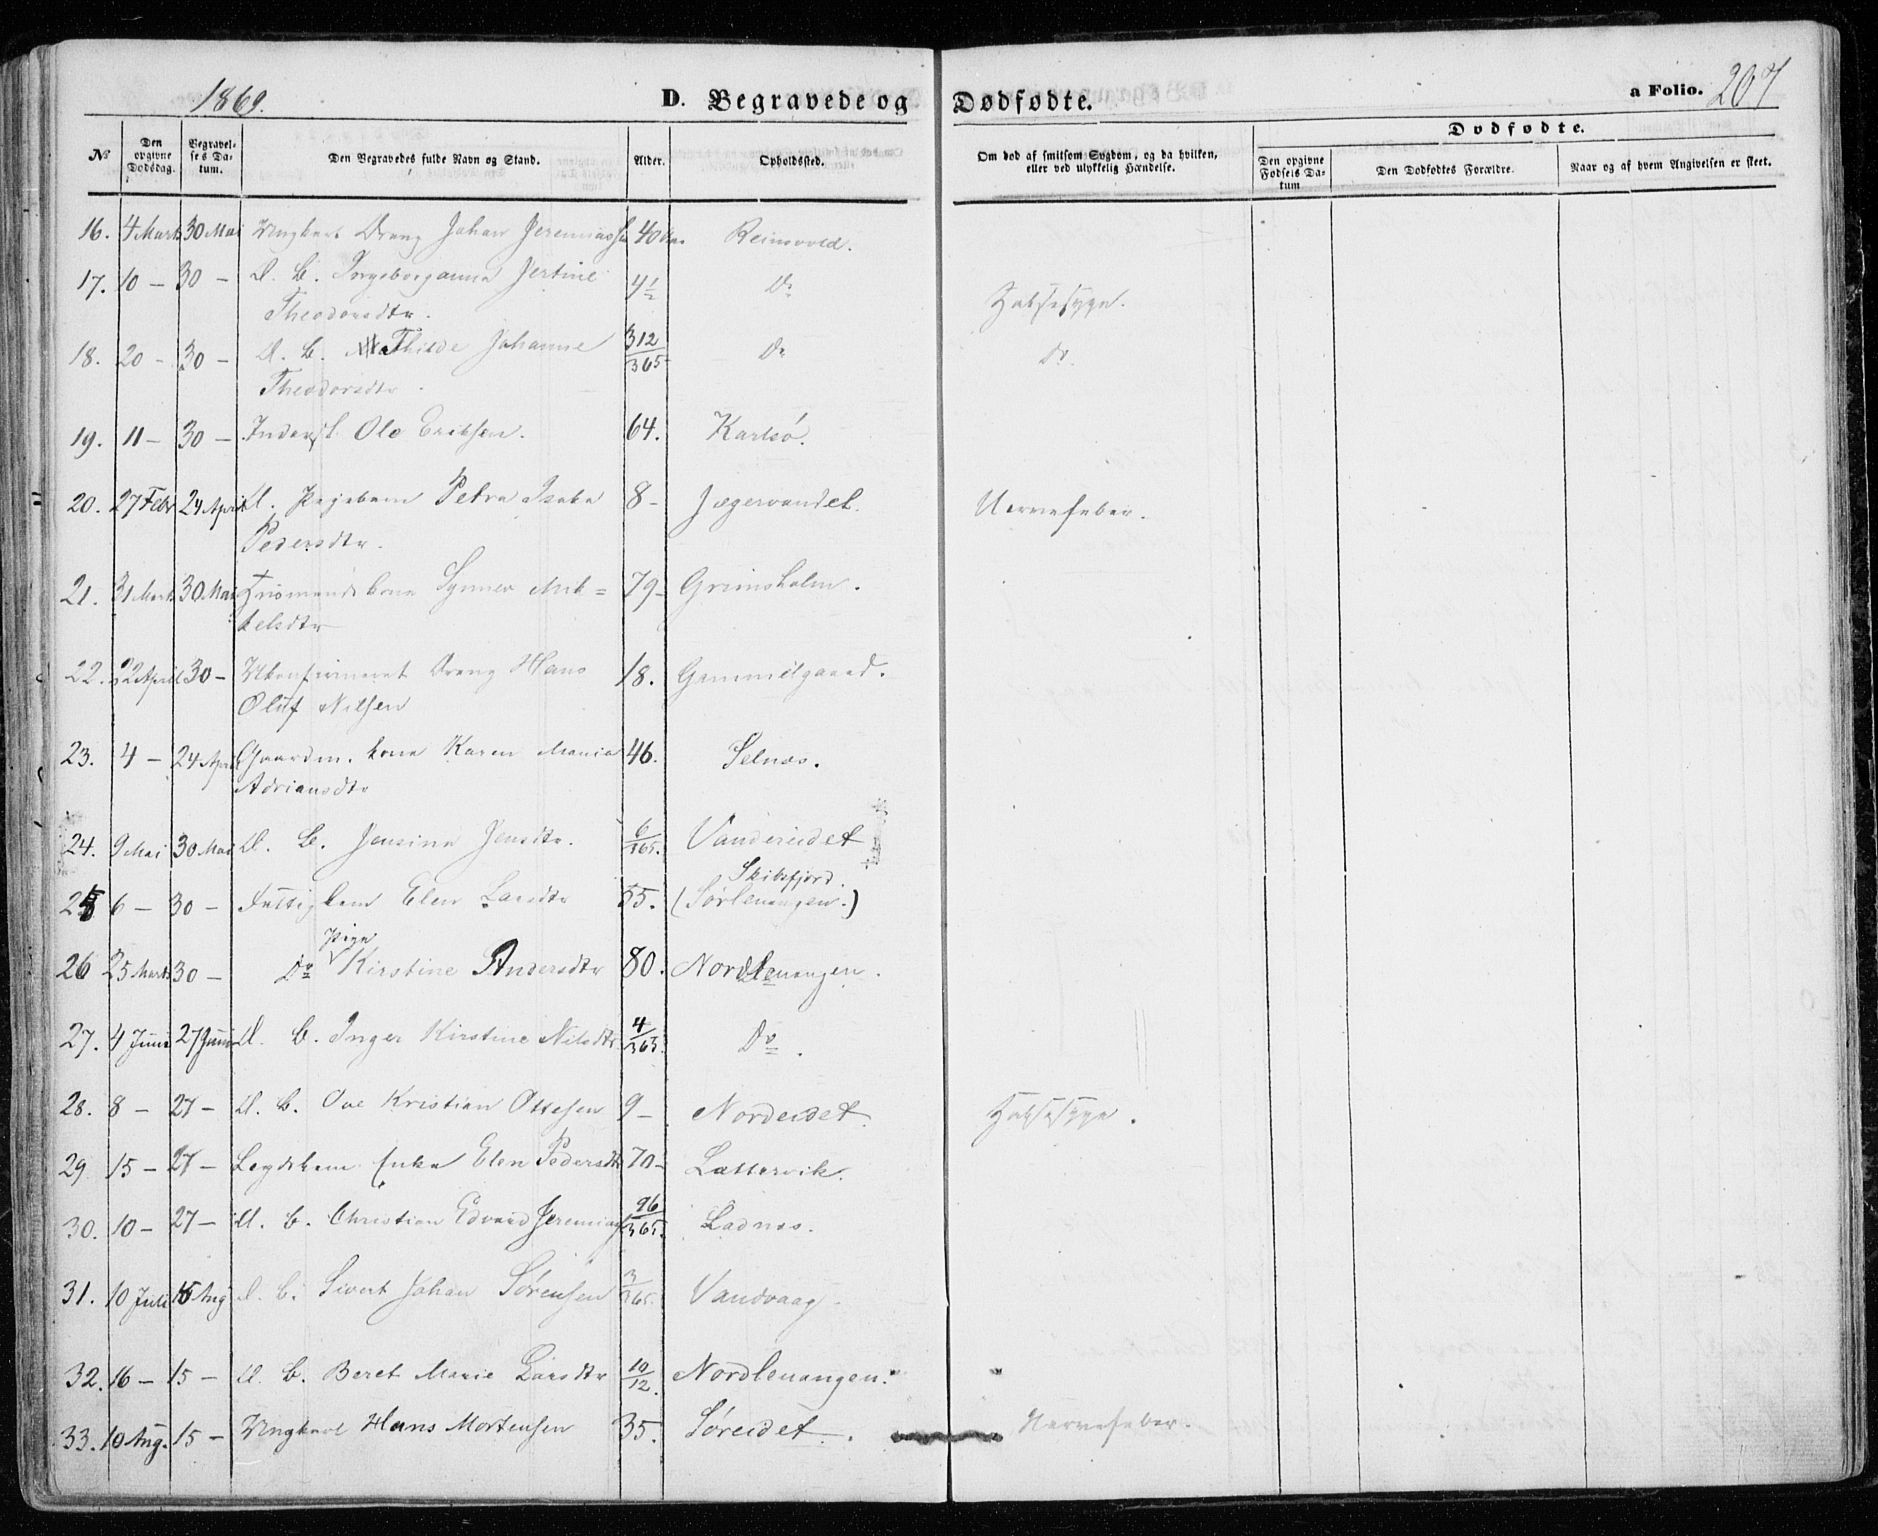 1869. D. Begravede og Dødfødte. a Folio. 207
Dødfødte.
No Den opgivne Dødsdag. Begravelses Datum. Den Begravedes fulde Navn og Stand. Alder. Opholdssted. Om død af smitsom Sygdom, og da hvilken, eller ved ulykkelig Hændelse. Den opgivne Fødsels Datum Den Dødfødtes Forældre. Naar og af hvem Angivelsen er skeet.
16. 4 Marts 30 Mai Ungkarl Dreng Johan Jeremiassen 40 Reinsvold.
17. 10 - 30 - U. B. Ingeborganna Jertine 4½ Do Halssyge.
Theodorsdtr.
18. 20 - 30 - U. B. Mathilde Johanne 312/365 Do Do.
Theodorsdtr.
19. 11 - 30 - Inderst. Ole Eriksen. 64. Karlsø.
20. 27 Febr 24 April U. Pigebarn Petra 8 - Jægervandet. Nervefeber.
Pedersdtr.
21. 31 Marts 30 Mai Huusmandskone Synnev Mik= 79 - Grimsholm.
kelsdtr
22. 22 April 30 - Ukonfirmeret Dreng Hans 18. Gammelgaard.
Oluf Nilsen
23. 4 - 24 April Gaardm. kone Karen Maria 46. Selnes.
Adriansdtr
24. 9 Mai 30 Mai U. B. Jensine Jensdtr. 6/365. Vandeidet
Skibsfjord.
25 6 - 30 - Fattiglem Elen Larsdtr 55. (Sørlenangen.)
Pige
26 25 Marts 30 - Do Kirstine Andersdtr 80. Nordlenangen.
27. 4 Juni 27 Juni U. B. Inger Kirstine Nilsdtr 4/365. Do.
28. 8 - 27 - U. B. Ove Kristian Ottesen 9 - Nordeidet. Halssyge.
29 15 - 27 - Lægdslem Enke Elen Pedersdtr 70 - Lattervik.
30. 10 - 27 - U. B. Christian Edvard Jeremias 96/365. Ladnes.
31. 10 Juli 15 Aug U. B. Sivert Johan Sørensen 3/365. Vandvaag.
32. 16 - 15 - U. B. Beret Marie Larsdtr 10/12. Nordlenangen.
33. 10 Aug. 15 - Ungkarl Hans Mortensen 35. Søreidet. Nervefeber.